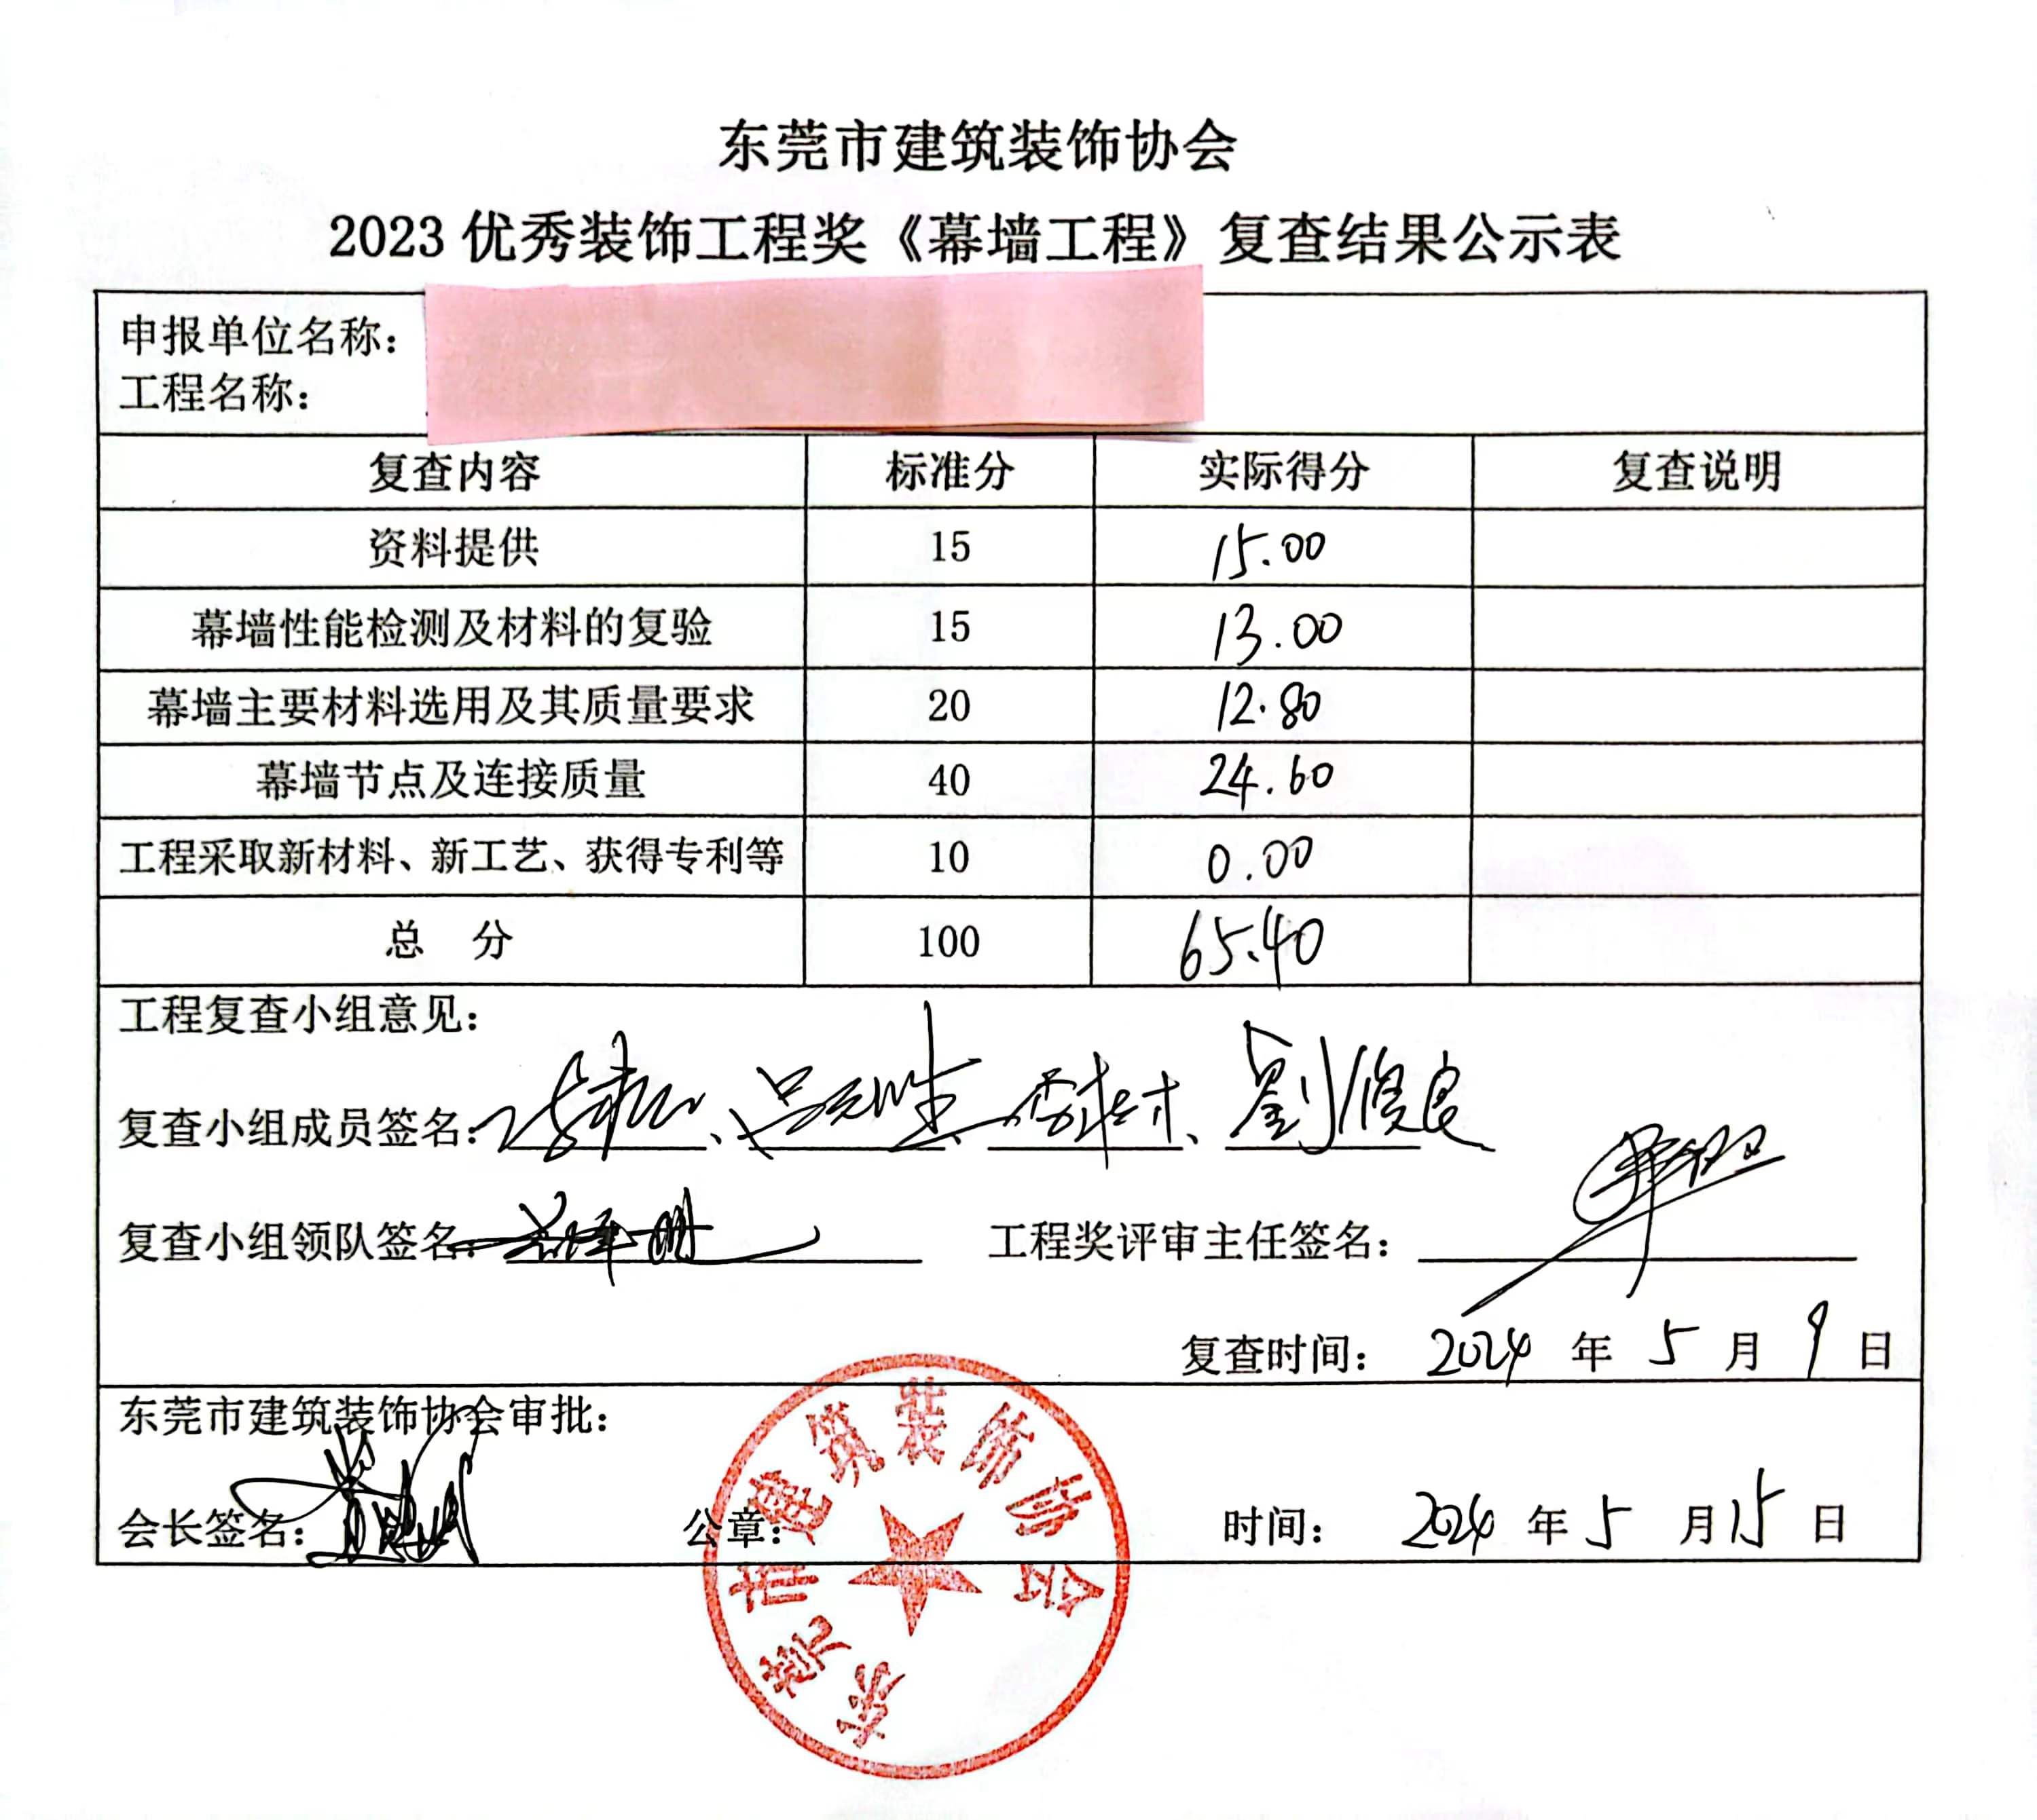 东莞市建筑装饰协会
2023 优秀装饰工程奖《幕墙工程》复查结果公示表
申报单位名称：
工程名称：
复查内容 标准分 实际得分 复查说明
资料提供 15 15.00
幕墙性能检测及材料的复验 15 13.00
幕墙主要材料选用及其质量要求 20 12.80
幕墙节点及连接质量 40 24.60
工程采取新材料、新工艺、获得专利等 10 0.00
总 分 100 65.40
工程复查小组意见：
复查小组成员签名： 、 、 、劉俊良
复查小组领队签名： 工程奖评审主任签名：
复查时间： 2024 年 5 月 9 日
东莞市建筑装饰协会审批：
会长签名： 公章： 时间： 2024 年 5 月 15 日
东莞市建筑装饰协会